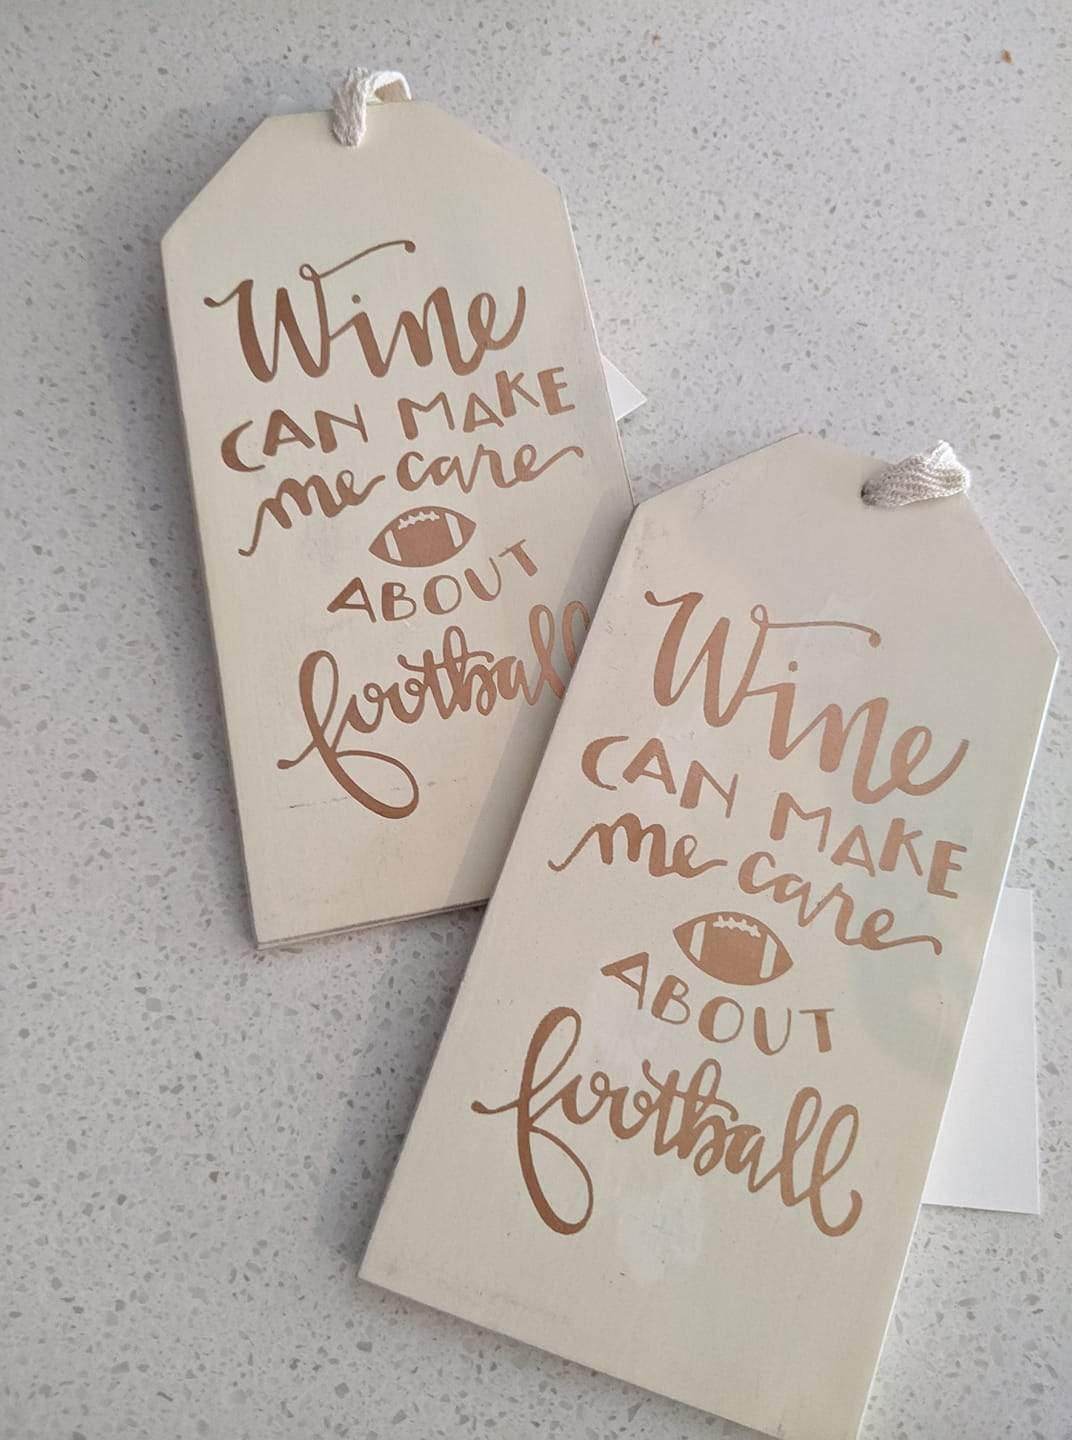 Wine
CAN MAKE
me care
ABOUT
football
Wine
CAN MAKE
me care
ABOUT
football